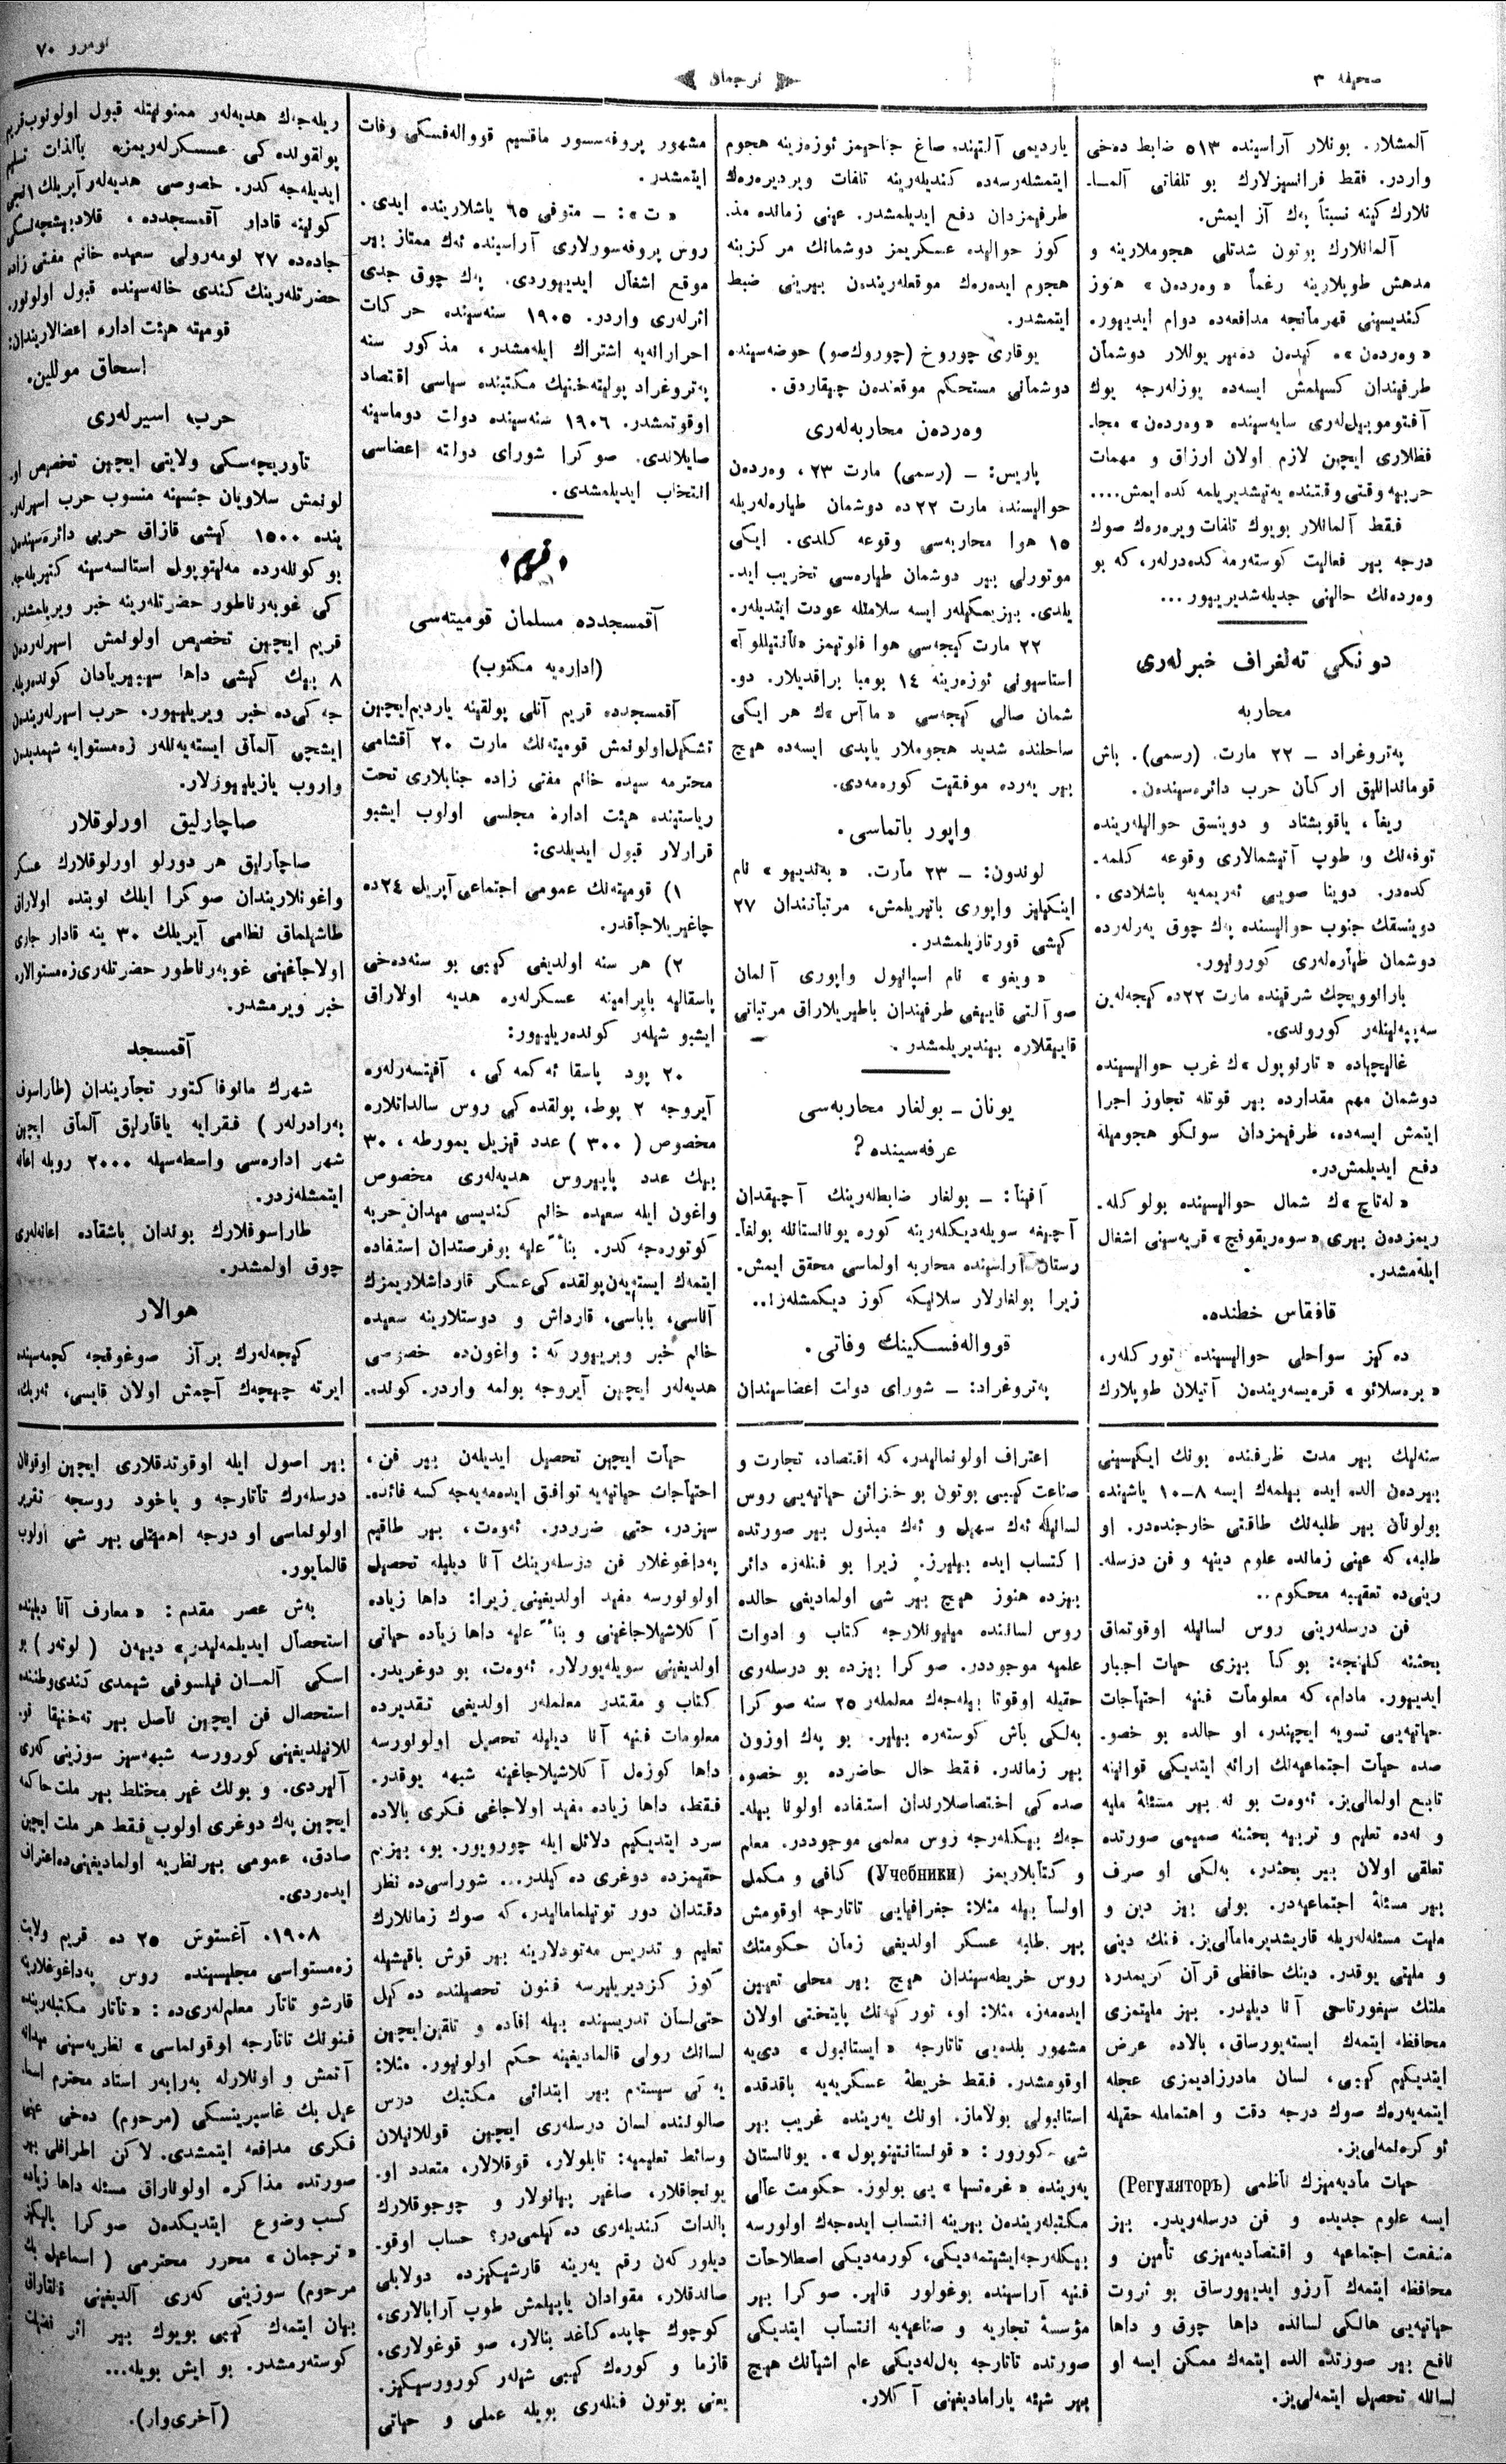 صحیفه ٣
ترجمان
نومرو ٧٠
آلمشلار. بونلار آراسینده ٥١٣ ضابط ده‌خی
واردر. فقط فرانسیزلارك بو تلفاتی آلمـا-
نلارك كینه نسبتاً پەك آز ایمش.
آلمانلارك بوتون شدتلی هجوملارینه و
مدهش طوپلارینه رغماً «وەردەن» هنوز
كندیسینی قهرمانجه مدافعه‌ده دوام ایدیپور.
«وەردەن»ە كیدەن دەمیر یوللار دوشمان
طرفیندان كسیلمش ایسه‌ده یوزلەرجه یوك
آفتوموبیل‌لەری سایه‌سینده «وەردەن» محا-
فظلاری ایچین لازم اولان ارزاق و مهمات
حربیه وقتی وقتنده یەتیشدیریلمه كده‌ایمش....
فقط آلمانلار بویوك تلفات ویرەرەك صوك
درجه بیر فعالیت كوستەرمه كده‌درلەر، كه بو
وەردەنك حالینی جدیلەشدیریپور...
دونكی تەلغراف خبرلەری
محاربه
پەتروغراد — ٢٢ مارت. (رسمی). باش
قوماندانلیق اركان حرب دائرەسیندەن.
ریغا، یاقوبشتاد و دوینسق حوالیلەرینده
توفەنك و طوپ آتیشمالاری وقوعه كلمه-
كده‌در. دوینا صویی ئەریمەیه باشلادی.
دوینسقك جنوب حوالیسنده پەك چوق یەرلەرده
دوشمان طیارەلەری كورولیور.
بارانوویچك شرقینده مارت ٢٢ده كیجەلەین
سەپپەلینلەر كورولدی.
غالیچیاده «تارنوپول»ك غرب حوالیسینده
دوشمان مهم مقدارده بیر قوتله تجاوز اجرا
ایتمش ایسه‌ده، طرفیمزدان سونگو هجومیله
دفع ایدیلمش‌در.
«لەتاچ»ك شمال حوالیسینده بولوكلە-
ریمزدەن بیری «سوەریقوفچ» قریه‌سینی اشغال
ایلەمشدر.
قافقاس خطنده.
دەكیز سواحلی حوالیسینده توركلەر،
«برەسلائو» قرەیسەریندەن آتیلان طوپلارك
یاردیمی آلتینده صاغ جناحیمز ئوزەرینه هجوم
ایتمشلەرسه‌ده كندیلەرینه تلفات ویردیرەرەك
طرفیمزدان دفع ایدیلمشدر. عینی زمانده مذ-
كوز حوالیده عسكریمز دوشمانك مركزینه
هجوم ایدەرەك موقعلەریندەن بیرینی ضبط
ایتمشدر.
یوقاری چوروخ (چوروك‌صو) حوضه‌سینده
دوشمانی مستحكم موقعندەن چیقاردق.
وەردەن محاربه‌لەری
پاریس: — (رسمی) مارت ٢٣، وەردەن
حوالیسنده مارت ٢٢ ده دوشمان طیارەلەریله
١٥ هوا محاربه‌سی وقوعه كلدی. ایكی
موتورلی بیر دوشمان طیارەسی تخریب اید-
یلدی. بیزیمكیلەر ایسه سلامتله عودت ایتدیلەر.
٢٢ مارت كیجه‌سی هوا فلوتیمز «نانتیللوآ»
استاسیونی ئوزەرینه ١٤ بومبا براقدیلار. دو-
شمان صالی كیجه‌سی «ماآس»ك هر ایكی
ساحلنده شدید هجوملار یاپدی ایسه‌ده هیچ
بیر یەرده موفقیت كورەمەدی.
واپور باتماسی.
لوندون: — ٢٣ مارت. «بەندیهو» نام
اینكیلیز واپوری باتیریلمش، مرتباتندان ٢٧
كیشی قورتاریلمشدر.
«ویغو» نام اسپانیول واپوری آلمان
صو آلتی قاییغی طرفیندان باطیریلاراق مرتباتی
قاییقلاره بیندیریلمشدر.
یونان — بولغار محاربه‌سی
عرفه‌سینده؟
آفینا: — بولغار ضابطلەرینك آچیقدان
آچیغه سویلەدیكلەرینه كوره یونانستانله بولغا-
رستان آراسینده محاربه اولماسی محقق ایمش.
زیرا بولغارلار سلانیكه كوز دیكمشلەر!..
قووالەفسكینك وفاتی.
پەتروغراد: — شورای دولت اعضاسیندان
مشهور پروفه‌سسور ماقسیم قووالەفسكی وفات
ایتمشدر.
«ت»: — متوفی ٦٥ یاشلارینده ایدی.
روس پروفه‌سورلاری آراسینده ئەك ممتاز بیر
موقع اشغال ایدیپوردی. پەك چوق جدی
اثرلەری واردر. ١٩٠٥ سنه‌سینده حركات
احرارانه‌یه اشتراك ایلەمشدر، مذكور سنه
پەتروغراد پولیتەخنیك مكتبنده سیاسی اقتصاد
اوقوتمشدر. ١٩٠٦ سنه‌سینده دولت دوماسینه
صایلاندی. صوكرا شورای دولته اعضاسی
انتخاب ایدیلمشدی.
قریم
آقمسجدده مسلمان قومیته‌سی
(ادارەیه مكتوب)
آقمسجدده قریم آتلی پولقینه یاردیم‌ایچین
تشكیل‌اولونمش قومیته‌نك مارت ٢٠ آقشامی
محترمه سیده خانم مفتی زاده جنابلاری تحت
ریاستینده هیئت اداره مجلسی اولوب ایشبو
قرارلار قبول ایدیلدی:
١) قومیته‌نك عمومی اجتماعی آپریل ٢٤ده
چاغیریلاجاقدر.
٢) هر سنه اولدیغی كیبی بو سنه‌ده‌خی
پاسقالیه بایرامینه عسكرلەره هدیه اولاراق
ایشبو شیلەر كوندەریلیپور:
٢٠ پود پاسقا ئەكمه‌كی، آفیتسەرلەره
آیروجه ٢ پوط، پولقده‌كی روس سالداتلاره
مخصوص (٣٠٠) عدد قیزیل یمورطه، ٣٠
بیك عدد پاپیروس هدیه‌لەری مخصوص
واغون ایله سعیده خانم كندیسی میدان حربه
كوتورەجه‌كدر. بناءً علیه بوفرصتدان استفاده
ایتمەك ایستەیەن پولقده‌كی‌عسكر قارداشلاریمزك
آناسی، باباسی، قارداش و دوستلارینه سعیده
خانم خبر ویریپور كه: واغون‌ده خصوصی
هدیه‌لەر ایچین آیروجه بولمه واردر. كونده-
ریلەجەك هدیه‌لەر ممنونیتله قبول اولونوب قریم
پولقونده‌كی عسكرلەریمزه باالذات تسلیم
ایدیلەجه‌كدر. خصوصی هدیه‌لەر آپریلك ١نجی
كونینه قادار آقمسجدده، قلادبیشچه‌نسكی
جاده‌ده ٢٧ نومەرولی سعیده خانم مفتی زاده
حضرتلەرینك كندی خانه‌سینده قبول اولونور.
قومیته هیئت اداره اعضالاریندان:
اسحاق موللین.
حرب اسیرلەری
تاوریچه‌سكی ولایتی ایچین تخصیص او-
لونمش سلاویان جنسینه منسوب حرب اسیرلە-
ینده ١٥٠٠ كیشی قازاق حربی دائرەسیندەن
بو كونلەرده مەلیتوپول استانسه‌سینه كتیریلەجه-
كی غوبەرناطور حضرتلەرینه خبر ویریلمشدر.
قریم ایچین تخصیص اولونمش اسیرلەردەن
٨ بیك كیشی داها سیبیریادان كوندەریله-
جه‌كی‌ده خبر ویریلیپور. حرب اسیرلەریندەن
ایشچی آلماق ایستەیەنلەر زەمستوایه شیمدیدەن
واروب یازیلیپورلار.
صاچارلیق اورلوقلار
صاچارلیق هر دورلو اورلوقلارك عسكر
واغونلاریندان صوكرا ایلك نوبتده اولاراق
طاشیلماق نظامی آپریلك ٣٠ ینه قادار جاری
اولاجاغینی غوبەرناطور حضرتلەری‌زەمستوالاره
خبر ویرمشدر.
آقمسجد
شهرك مانوفاكتور تجاریندان (طاراسوف
بەرادرلەر) فقرایه یاقارلیق آلماق ایچین
شهر ادارەسی واسطه‌سیله ٢٠٠٠ روبله اعانه
ایتمشلەردر.
طاراسوفلارك بوندان باشقاده اعانه‌لەری
چوق اولمشدر.
هوالار
كیجه‌لەرك بر آز صوغوقجه كچمه‌سینده
ایرته چیچەك آچمش اولان قایسی، ئەریك،
سنه‌لیك بیر مدت ظرفنده بونك ایكیسینی
بیردەن الده ایده بیلمەك ایسه ٨—١٠ یاشینده
بولونان بیر طلبه‌نك طاقتی خارجنده‌در. او
طلبه، كه عینی زمانده علوم دینیه و فن درسلە-
رینی‌ده تعقیبه محكوم..
فن درسلەرینی روس لسانیله اوقوتماق
بحثنه كلینجه: بوكا بیزی حیات اجبار
ایدیپور. مادام، كه معلومات فنیه احتیاجات
حیاتیه‌یی تسویه ایچیندر، او حالده بو خصو-
صده حیات اجتماعیه‌نك ارائه ایتدیكی قوانینه
تابع اولمالی‌یز. ئەوەت بو نه بیر مسئلهٔ ملیه
و نه‌ده تعلیم و تربیه بحثنه صمیمی صورتده
تعلقی اولان بیر بحثدر، بەلكی او صرف
بیر مسئلهٔ اجتماعیه‌در. بونی بیز دین و
ملیت مسئله‌لەریله قاریشدیرمامالی‌یز. فنك دینی
و ملیتی یوقدر. دینك حافظی قرآن كریمدر،
ملتك سیغورتاسی آنا دیلیدر. بیز ملیتمزی
محافظه ایتمەك ایستەیورساق، بالاده عرض
ایتدیكیم كیبی، لسان مادرزادیمزی عجله
ایتمەیەرەك صوك درجه دقت و اهتمامله حقیله
ئوكرەنمه‌لی‌یز.
حیات مادیه‌میزك ناظمی (Регуляторъ)
ایسه علوم جدیده و فن درسلەریدر. بیز
منفعت اجتماعیه و اقتصادیه‌میزی تأمین و
محافظه ایتمەك آرزو ایدیپورساق بو ثروت
حیاتیه‌یی هانكی لسانده داها چوق و داها
نافع بیر صورتده الده ایتمەك ممكن ایسه او
لسانله تحصیل ایتمه‌لی‌یز.
اعتراف اولونمالیدر، كه اقتصاد، تجارت و
صناعت كیبی بوتون بو خزائن حیاتیه‌یی روس
لسانیله ئەك سهیل و ئەك مبذول بیر صورتده
اكتساب ایده بیلیرز. زیرا بو فنلەره دائر
بیزده هنوز هیچ بیر شی اولمادیغی حالده
روس لساننده میلیونلارجه كتاب و ادوات
علمیه موجوددر. صوكرا بیزده بو درسلەری
حقیله اوقوتا بیلەجەك معلملەر ٢٥ سنه صوكرا
بەلكی باش كوستەره بیلیر. بو پەك اوزون
بیر زماندر. فقط حال حاضرده بو خصو-
صده‌كی اختصاصلارندان استفاده اولونا بیله-
جەك بیكلەرجه روس معلمی موجوددر. معلم
و كتابلاریمز (Учебники) كافی و مكمل
اولسا بیله مثلا: جغرافیایی تاتارجه اوقومش
بیر طلبه عسكر اولدیغی زمان حكومتك
روس خریطه‌سیندان هیچ بیر محلی تعیین
ایدەمەز، مثلا: او، توركیه‌نك پایتختی اولان
مشهور بلده‌یی تاتارجه «ایستانبول» دییه
اوقومشدر. فقط خریطهٔ عسكریه‌یه باقدقده
استانبولی بولاماز. اونك یەرینده غریب بیر
شی كورور: «قونستانتینوپول». یونانستان
یەرینده «غرەتسیا» یی بولور. حكومت عالی
مكتبلەریندەن بیرینه انتساب ایدەجەك اولورسه
بیكلەرجه ایشیتمه‌دیكی، كورمه‌دیكی اصطلاحات
فنیه آراسینده بوغولور قالیر. صوكرا بیر
مؤسسهٔ تجاریه و صناعیه‌یه انتساب ایتدیكی
صورتده تاتارجه بەللەدیكی علم اشیانك هیچ
بیر شیئه یارامادیغینی آكلار.
حیات ایچین تحصیل ایدیلەن بیر فن،
احتیاجات حیاتیه‌یه توافق ایدەمەیەجه‌كسه فائده-
سیزدر، حتی ضرردر. ئەوەت، بیر طاقیم
پەداغوغلار فن درسلەرینك آنا دیلیله تحصیل
اولونورسه مفید اولدیغینی زیرا: داها زیاده
آكلاشیلاجاغینی و بناءً علیه داها زیاده حیاتی
اولدیغینی سویلەیورلار. ئەوەت، بو دوغریدر.
كتاب و مقتدر معلملەر اولدیغی تقدیرده
معلومات فنیه آنا دیلیله تحصیل اولونورسه
داها كوزەل آكلاشیلاجاغینه شبهه یوقدر.
فقط، داها زیاده مفید اولاجاغی فكری بالاده
سرد ایتدیكیم دلائل ایله چورویور. بو، بیزیم
حقیمزده دوغری ده‌كیلدر... شوراسی‌ده نظر
دقتدان دور توتیلمامالیدر، كه صوك زمانلارك
تعلیم و تدریس مەتودلارینه بیر قوش باقیشیله
كوز كزدیریلیرسه فنون تحصیلنده ده‌كیل
حتی‌لسان تدریسینده بیله افاده و تلقین‌ایچین
لسانك رولی قالمادیغینه حكم اولونیور. مثلا:
یەكی سیستەم بیر ابتدائی مكتبك درس
صالوننده لسان درسلەری ایچین قوللانیلان
وسائط تعلیمیه: تابلولار، قوقلالار، متعدد او-
یونجاقلار، صاغیر پیانولار و چوجوقلارك
بالذات كندیلەری ده‌كیلمی‌در؟ حساب اوقو-
دیلور كەن رقم یەرینه قارشیكیزده دولابلی
صاندقلار، مقوادان یاپیلمش طوپ آرابالاری،
كوچوك چایده كاغد بنالار، صو قوغولاری،
قازما و كورەك كیبی شیلەر كورورسیكیز.
یعنی بوتون فنلەری بویله عملی و حیاتی
بیر اصول ایله اوقوتدقلاری ایچین اوقونان
درسلەرك تاتارجه و یاخود روسجه تقریر
اولونماسی او درجه اهمیتلی بیر شی اولوب
قالمایور.
بەش عصر مقدم: «معارف آنا دیلینده
استحصال ایدیلمه‌لیدر» دییەن (لوتەر) بو
اسكی آلمـان فیلسوفی شیمدی كندی‌وطننده
استحصال فن ایچین ناصل بیر تەخنیقا قو-
للانیلدیغینی كورورسه شبهه‌سیز سوزینی كەری
آلیردی. و بونك غیر مختلط بیر ملت حاكمه
ایچین پەك دوغری اولوب فقط هر ملت ایچین
صادق، عمومی بیرنظریه اولمادیغینی‌ده‌اعتراف
ایدەردی.
١٩٠٨. آغستوس ٢٥ ده قریم ولایت
زەمستواسی مجلیسینده روس پەداغوغلارینه
قارشو تاتار معلم‌لەری‌ده: «تاتار مكتبلەرینده
فنونك تاتارجه اوقونماسی» نظریه‌سینی میدانه
آتمش و اونلارله بەرابەر استاد محترم اسما-
عیل بك غاسپرینسكی (مرحوم) ده‌خی عینی
فكری مدافعه ایتمشدی. لاكن اطرافلی بیر
صورتده مذاكره اولوناراق مسئله داها زیاده
كسب وضوع ایتدیكدەن صوكرا یالیكیز
«ترجمان» محرر محترمی (اسماعیل بك
مرحوم) سوزینی كەری آلدیغینی
بیان ایتمەك كیبی بویوك بیر اثر فضیلت
كوستەرمشدر. بو ایش بویله...
(آخری‌وار).